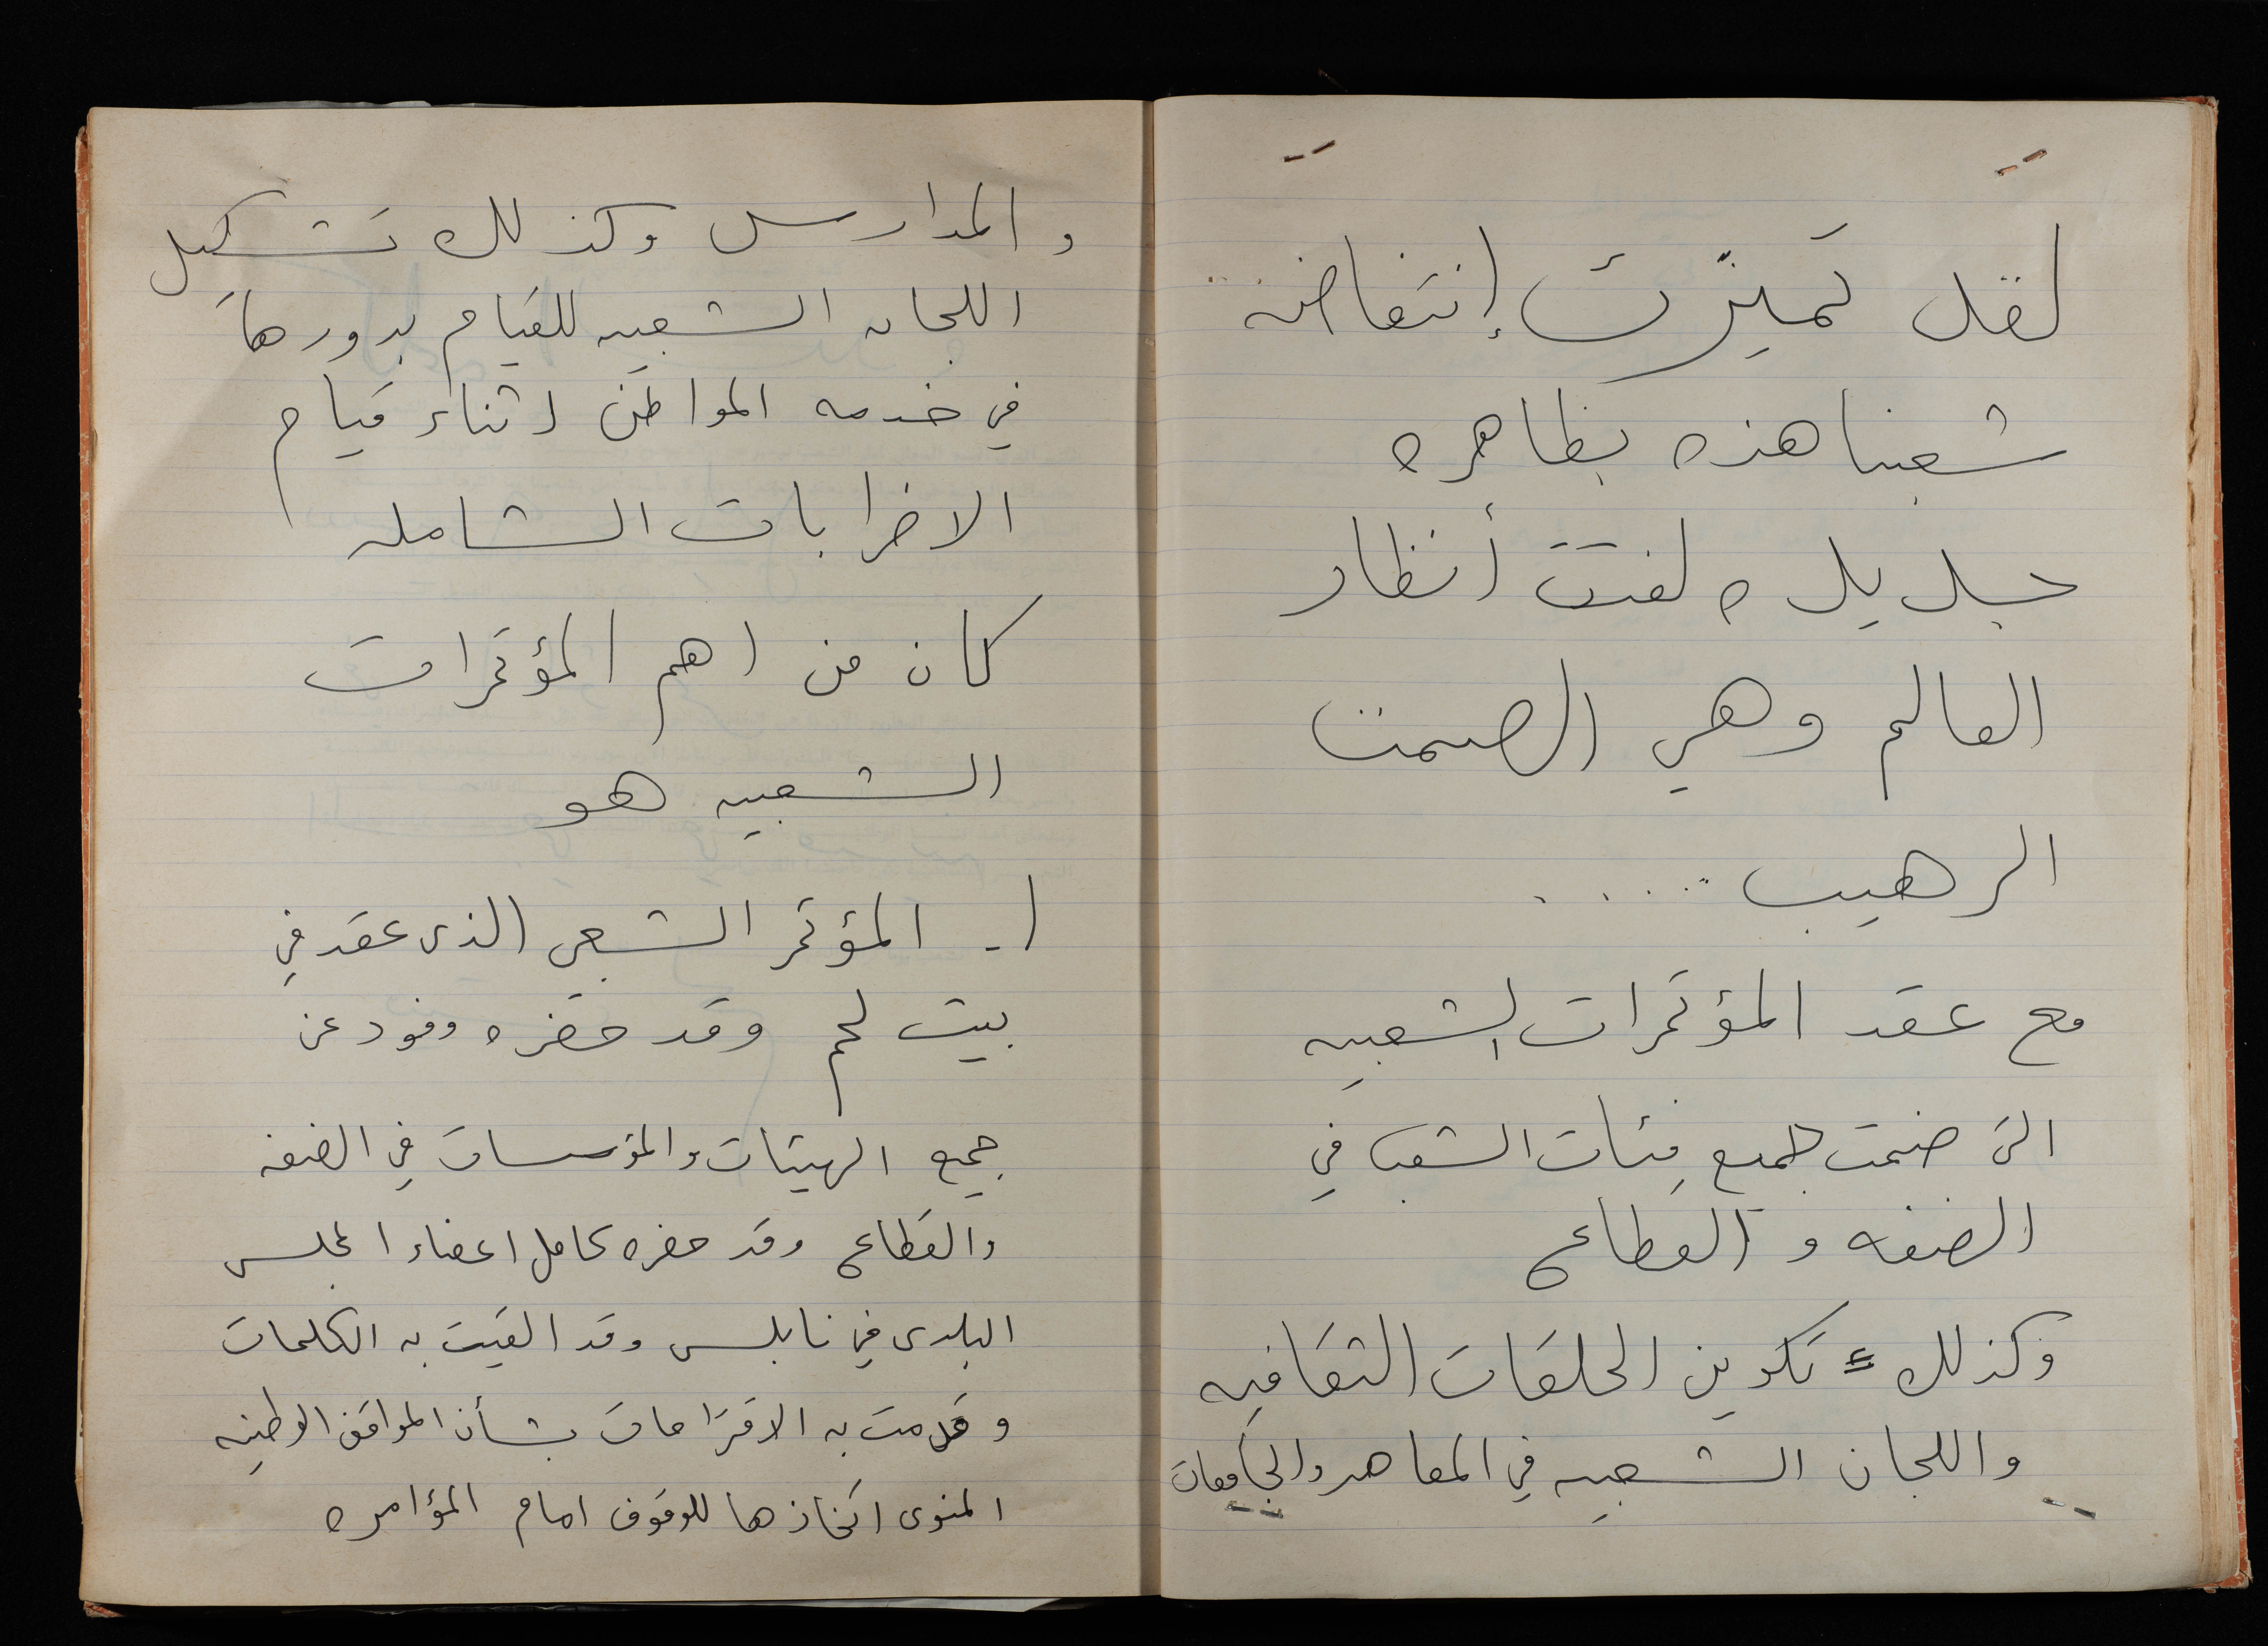 لقد تميّزت إنتفاضه
شعبنا هذه بظاهره
جديده لفتت أنظار
العالم وهي الصمت
الرهيب .....
مع عقد المؤتمرات الشعبيه
التي ضمت جميع فئات الشعب في
الضفه والقطاع
وكذلك تكوين الحلقات الثقافيه
واللجان الشعبيه في المعاهد والجامعات
والمدارس وكذلك تشكيل
اللجان الشعبيه للقيام بدورها
في خدمه المواطن اثناء قيام
الاضرابات الشامله
كان من اهم المؤتمرات
الشعبيه هو
١- المؤتمر الشعبي الذى عقد في
بيت لحم وقد حضره وفود عن
جميع الهيئات والمؤسسات في الضفه
والقطاع وقد حضره كامل اعضاء المجلس
البلدى في نابلس وقد القيت به الكلمات
وقدمت به الاقتراحات بشأن المواقف الوطنيه
المنوى اتخاذها للوقوف امام المؤامره